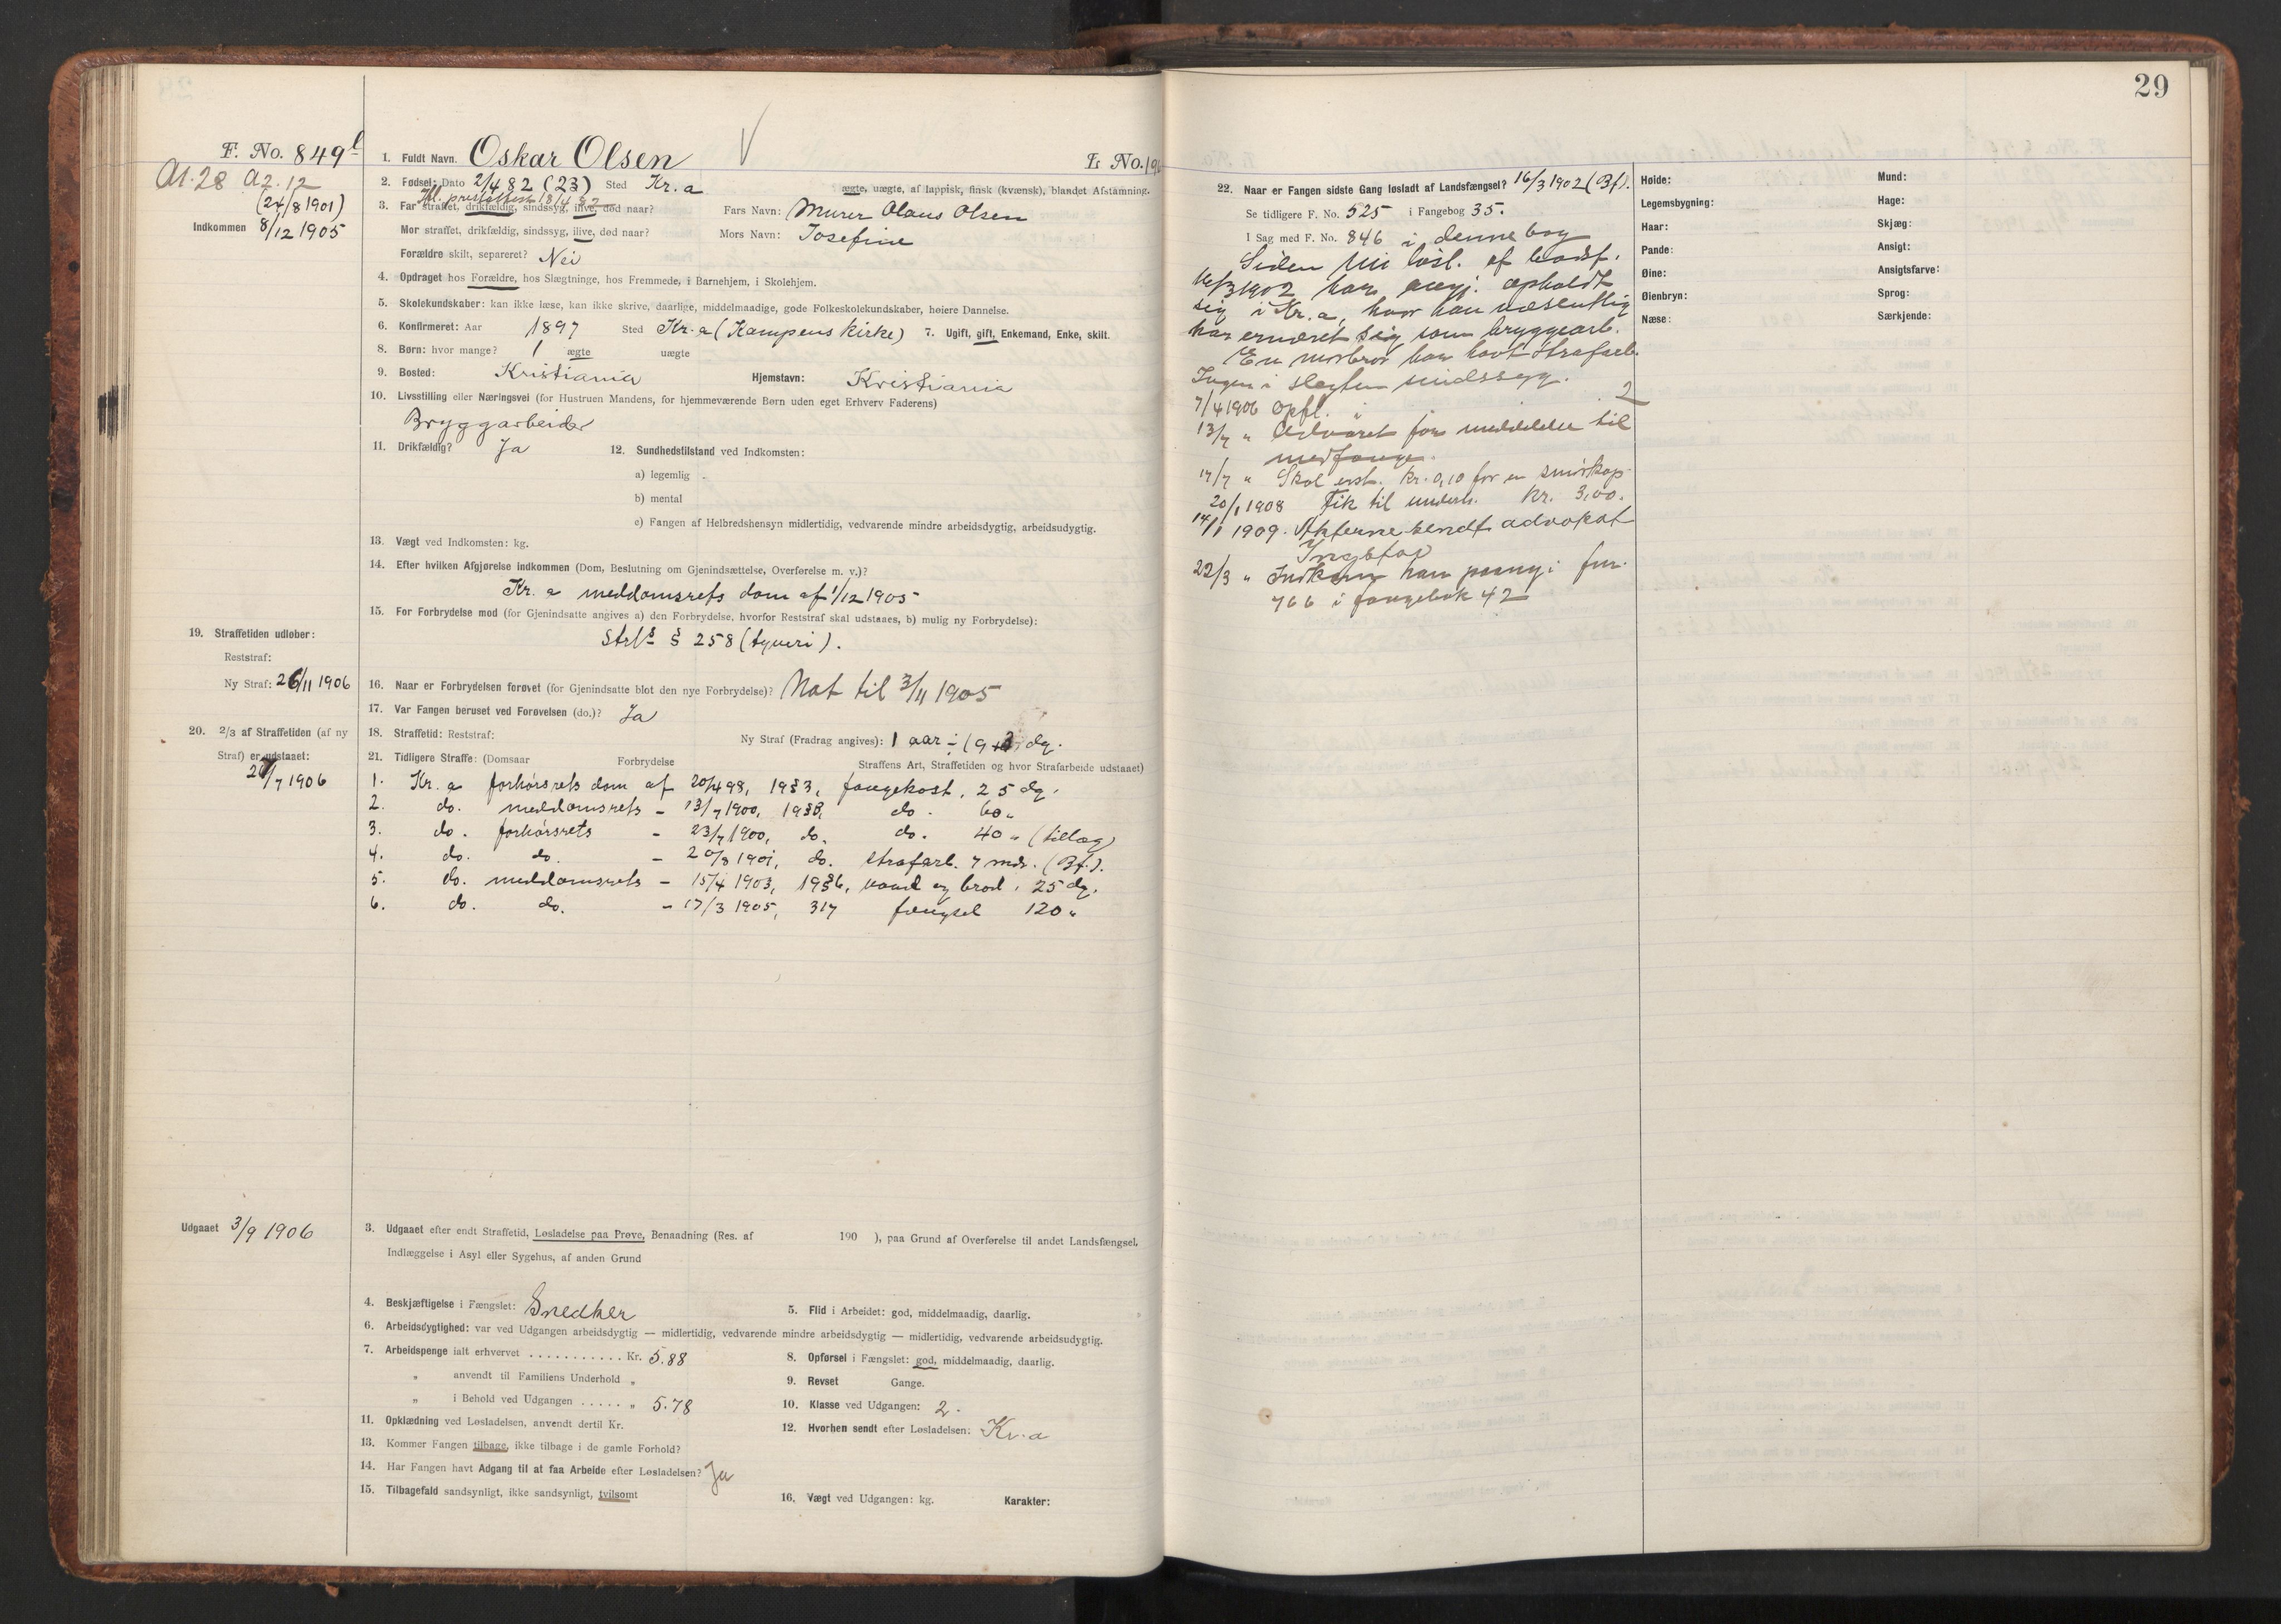 29
F. No. 849 b
1. Fuldt Navn. Oskar Olsen
L No. 196
A1.28 A2.12
(24/8 1901)
Indkommen 8/12 1905
2. Fødsel: Dato 2/4 82 (23) Sted Kr.a
ægte, uægte, af lappisk, finsk (kvænsk), blandet Afstamning.
Ifl. prestattest 18/4 82
3. Far straffet, drikfældig, sindssyg, ilive, død naar? Fars Navn: Murer Olaus Olsen
Mor straffet, drikfældig, sindssyg, ilive, død naar? Mors Navn: Josefine
Forældre skilt, separeret? Nei
4. Opdraget hos Forældre, hos Slægtninge, hos Fremmede, i Barnehjem, i Skolehjem.
5. Skolekundskaber: kan ikke læse, kan ikke skrive, daarlige, middelmaadige, gode Folkeskolekundskaber, høiere Dannelse.
6. Konfirmeret: Aar 1897 Sted Kr.a (Kampens Kirke) 7. Ugift, gift, Enkemand, Enke, skilt.
8. Børn: hvor mange? 1 ægte uægte
9. Bosted: Kristiania Hjemstavn: Kristiania
10. Livsstilling eller Næringsvei (for Hustruen Mandens, for hjemmeværende Børn uden eget Erhverv Faderens)
Bryggarbeider
11. Drikfældig? Ja 12. Sundhedstilstand ved Indkomsten:
a) legemlig
b) mental
c) Fangen af Helbredshensyn midlertidig, vedvarende mindre arbeidsdygtig, arbeidsudygtig.
13. Vægt ved Indkomsten: kg.
14. Efter hvilken Afgjørelse indkommen (Dom, Beslutning om Gjenindsættelse, Overførelse m. v.)?
Kr. a meddomsrets dom af 1/12 1905
15. For Forbrydelse mod (for Gjenindsatte angives a) den Forbrydelse, hvorfor Reststraf skal udstaaes, b) mulig ny Forbrydelse):
Strl. § 258 (tyveri).
19. Straffetiden udløber:
Reststraf:
Ny Straf: 26/11 1906
16. Naar er Forbrydelsen forøvet (for Gjenindsatte blot den nye Forbrydelse)? Nat til 3/11 1905
17. Var Fangen beruset ved Forøvelsen (do.)? Ja
20. 2/3 af Straffetiden (af ny
Straf) er udstaaet:
/7 1906
18. Straffetid: Reststraf: Ny Straf (Fradrag angives): 1 aar ÷ (9 + dg.
21. Tidligere Straffe: (Domsaar Forbrydelse Straffens Art, Straffetiden og hvor Strafarbeide udstaaet)
1. Kr. a forhørsrets dom af 20/4 98, 19 § 3, fangekost, 25 dg.
2. do. meddomsrets - 13/7 1900, do. 60 "
3. do. forhørsrets - 23/7 1900, do. do. 40 " (tillæg)
4. do. do. - 20/8 1901, do. strafarb. 7 mdr. (Bf.).
5. do. meddomsrets - 15/4 1903, 19 § 6, vand og brød, 25 dg.
6. do. do. - 17/3 1905, 317 fængsel 120 "
Udgaaet 3/9 1906
3. Udgaaet efter endt Straffetid, Løsladelse paa Prøve, Benaadning (Res. af 190 ), paa Grund af Overførelse til andet Landsfængsel,
Indlæggelse i Asyl eller Sygehus, af anden Grund
4. Beskjæftigelse i Fængslet: Snedker 5. Flid i Arbeidet: god, middelmaadig, daarlig.
6. Arbeidsdygtighed: var ved Udgangen arbeidsdygtig — midlertidig, vedvarende mindre arbeidsdygtig — midlertidig, vedvarende arbeidsudygtig.
7. Arbeidspenge ialt erhvervet ........... Kr. 5.88 8. Opførsel i Fængslet: god, middelmaadig, daarlig.
" anvendt til Familiens Underhold " 9. Revset Gange.
" i Behold ved Udgangen ..... " 5.78 10. Klasse ved Udgangen: 2.
11. Opklædning ved Løsladelsen, anvendt dertil Kr. 12. Hvorhen sendt efter Løsladelsen: Kr.a
13. Kommer Fangen tilbage, ikke tilbage i de gamle Forhold?
14. Har Fangen havt Adgang til at faa Arbeide efter Løsladelsen? Ja
15. Tilbagefald sandsynligt, ikke sandsynligt, tvilsomt
16. Vægt ved Udgangen: kg. Karakter:
22. Naar er Fangen sidste Gang løsladt af Landsfængsel? 16/3 1902 (Bf).
Se tidligere F. No. 525 i Fangebog 35.
I Sag med F. No. 846 i denne bog
Siden løsl. af bodsf.
16/3 1902 har opholdt
sig i Kr.a, hvor han væsentlig
har ernæret sig som bryggearb.
En morbror har havt strafarb.
Ingen i slegten sindssyg.
7/4 1906 Opfl. i 2
13/7 " Advaret for meddelelse til
medfange.
17/7 " Skal erst. kr. 0,10 for en smørkop
20/1 1908 Fik til underh. kr. 3,00.
14/1 1909. Akterne sendt advokat
22/3 " Indkom han paany i fnr.
766 i fangebok 42
Høide:
Legemsbygning:
Haar:
Pande:
Øine:
Øienbryn:
Næse:
Mund:
Hage:
Skjæg:
Ansigt:
Ansigtsfarve:
Sprog:
Særkjende: